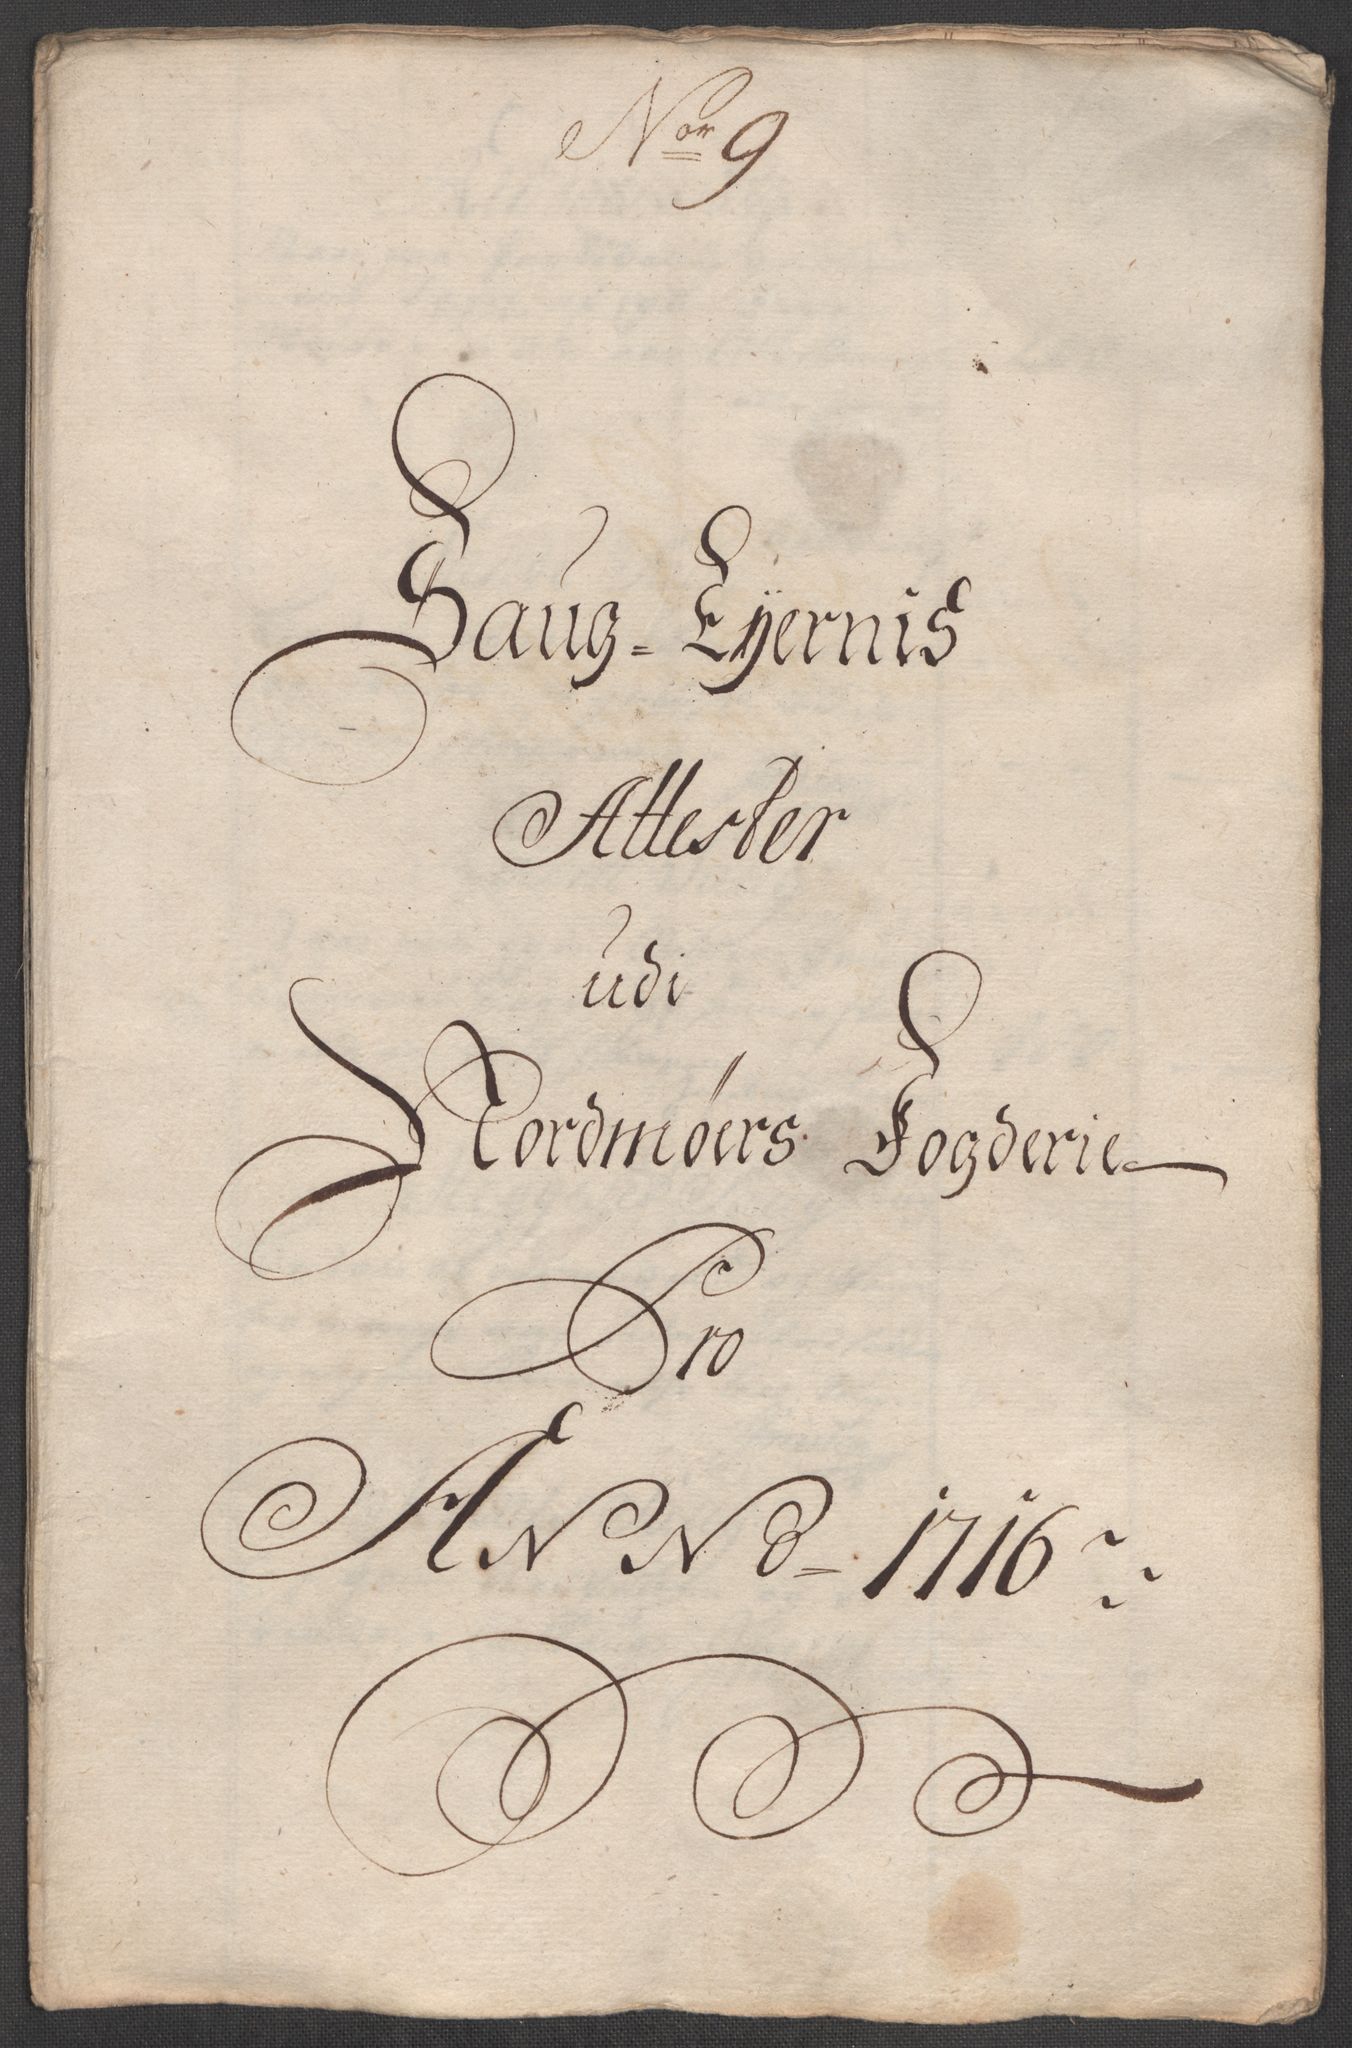 Nor 9
Saug-Eyernis
Attester
udi
Nordmøers Fogderie
Pro
ANNO-1716